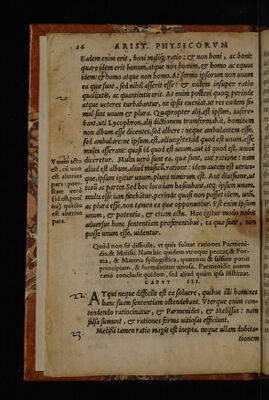 26 ARIST. PHYSICORVM
Eadem enim erit, boni maliq́; ratio: & non boni, ac boni:
quare idem erit bonum, atque non bonum, & homo ac equus
idem: & homo atque non homo. At sermo ipsorum non unum
ea quæ sunt, sed nihil asserit esse: & eadem insuper ratio
qualitatis, ac quantitatis erit. At enim posteri quoq; perinde
atque ueteres turbabantur, ne ipsis eueniat, ut res eadem si-
mul sint unum & plura. Quapropter alij, est ipsum, auster-
bant, uti Lycophron, alij dictionem transformabāt, hominem
non album esse dicentes, sed albere: neque ambulantem esse,
sed ambulare: ne ipsum,
multa asserant: quasi id quod est unum, aut id quod est, unicè
diceretur. Multa uerò sunt ea, quæ sunt, aut ratione: nam
aliud est albam, aliud musicū, ratione: idem autem est utrum-
que, ipsum igitur unum, plura nimirum est. Aut diuisione, ut
totū ac partes. Sed hoc loco iam hæsitabant, atq; ipsum unum,
multa esse iam fatebātur, perinde quasi non posset idem, unū,
ac plura esse, non tamen ea quæ opponuntur. Est enim ipsum
unum, & potentia, & etiam actu. Hoc igitur modo nobis
aduersus hanc sententiam proferentibus, ea quæ sunt, non
posse unum esse, uidentur.
Vnum actu
est, cū non
est alterius
pars: pote-
state verò
(id est poni
ua) quādiu
est alterius
pars.
Quòd non sit difficile, vt quis soluat rationes Parmeni-
dis, & Melissi. Nam hic quidem vtroque peccat, & For-
ma, & Materia syllogistica, quatenus & falsum ponit
principium, & sermatur vniuersa. Parmenidis autem
ratio concludit quidem, sed aliud quàm ipsa iustitiat.
CAPVT III.
22. ATqui neque difficile est ea soluere, quibus illi homines
hanc suam sententiam ostendebant. Vterque enim con-
tendendo ratiocinatur, & Parmenides, & Melissus: nam
falsa sumunt, & rationes forma uitiosas efficiunt.
23. Melissi tamen ratio magis est inepta, neque ullam dubita-
tionem